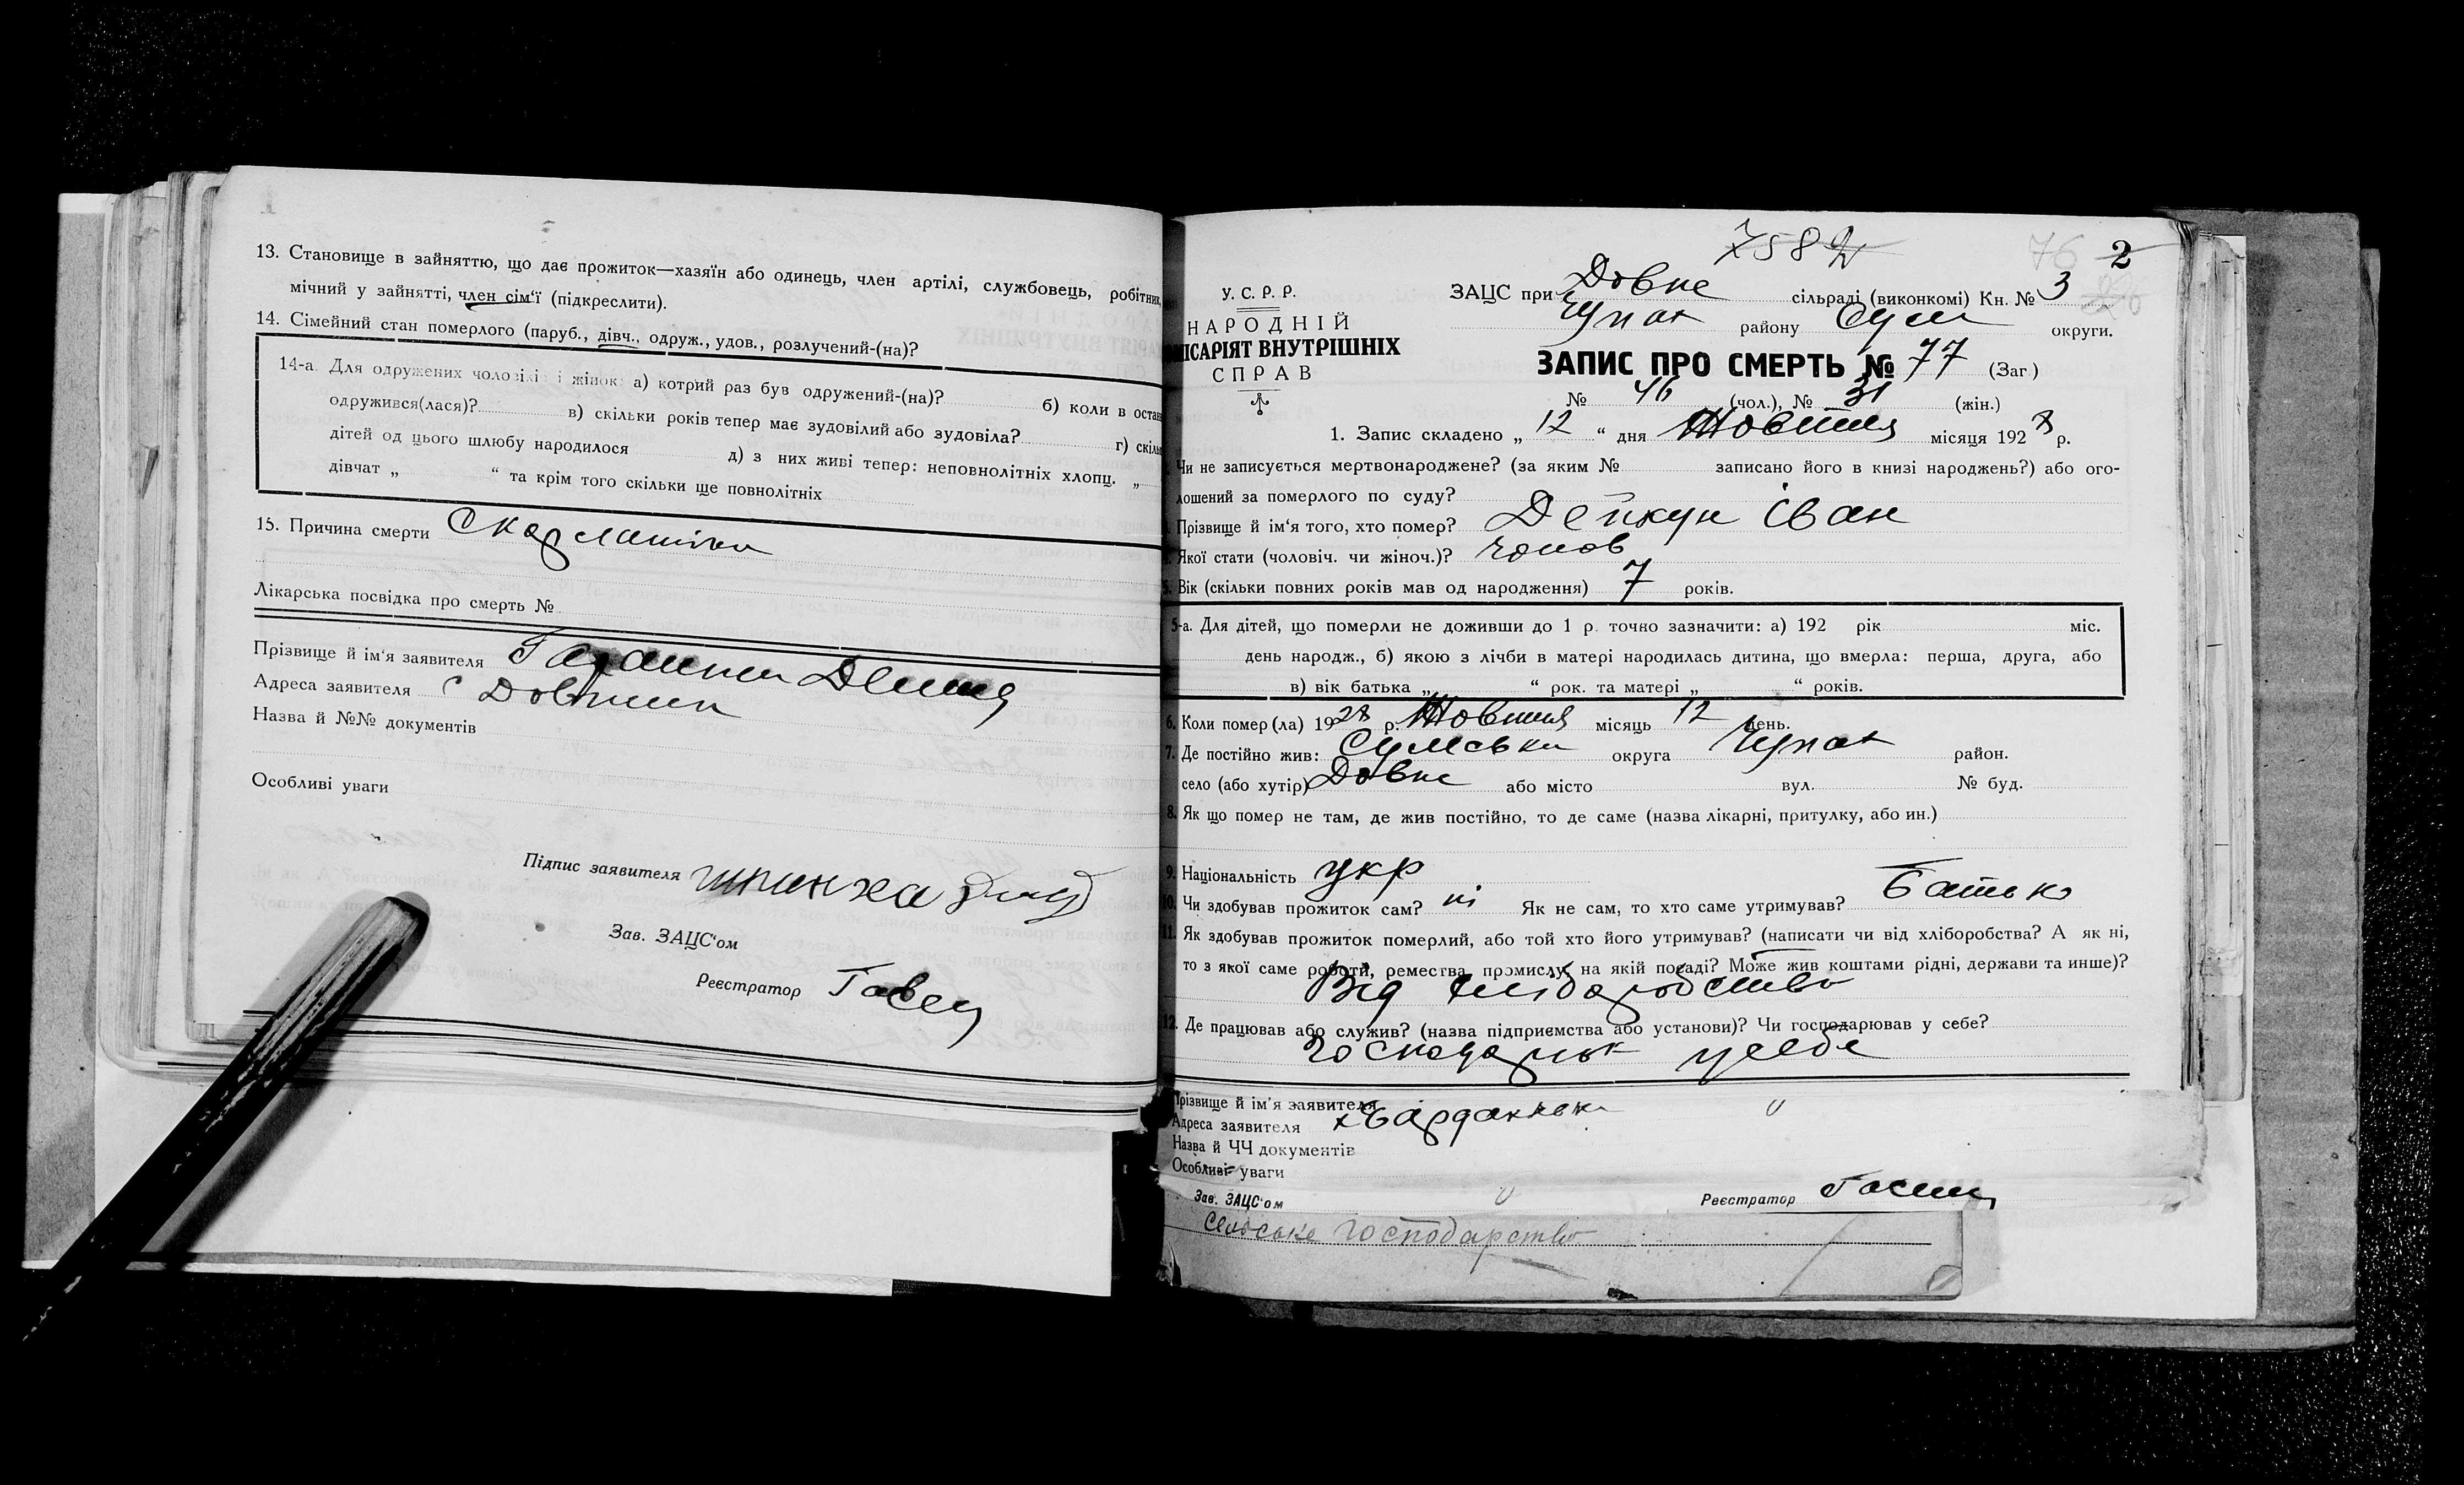 13. Становище в зайняттю, що дає прожиток—хазяїн або одинець, член артілі, службовець, робітник,
мічний у зайнятті, член сім'ї (підкреслити).
14. Сімейний стан померлого (паруб., дівч., одруж., удов., розлучений-(на)?
14-а. Для одружених чоловіків і жінок: а) котрий раз був одружений-(на)? б) коли в остан
одружився(лася)? в) скільки років тепер має зудовілий або зудовіла? г) скіль
дітей од цього шлюбу народилося д) з них живі тепер: неповнолітніх хлопц. „
дівчат „ “ та крім того скільки ще повнолітніх
15. Причина смерти Скарлатина
Лікарська посвідка про смерть №
Прізвище й ім'я заявителя
Адреса заявителя с
Назва й №№ документів
Особливі уваги
Підпис заявителя
Зав. ЗАЦС'ом
Реєстратор
7582
76 2
У. С. Р. Р.
НАРОДНІЙ
ІСАРІЯТ ВНУТРІШНІХ
СПРАВ
ЗАЦС при Довне сільраді (виконкомі) Кн. № 3
Чупах району Сум округи.
ЗАПИС ПРО СМЕРТЬ № 77 (Заг)
№ 46 (чол.), № 31 (жін.)
1. Запис складено „ 12 “ дня Жовтня місяця 1928 р.
Чи не записується мертвонароджене? (за яким № записано його в книзі народжень?) або ого-
лошений за померлого по суду?
Прізвище й ім'я того, хто помер? Дейкун Іван
Якої стати (чоловіч. чи жіноч.)? чолов
5. Вік (скільки повних років мав од народження) 7 років.
5-а. Для дітей, що померли не доживши до 1 р. точно зазначити: а) 192 рік міс.
день народж., б) якою з лічби в матері народилась дитина, що вмерла: перша, друга, або
в) вік батька „ “ рок. та матері „ “ років.
6. Коли помер (ла) 1928 р. Жовтня місяць 12 день.
7. Де постійно жив: Сумська округа Чупах район.
село (або хутір) Довне або місто вул. № буд.
8. Як що помер не там, де жив постійно, то де саме (назва лікарні, притулку, або ин.)
9. Національність укр
10. Чи здобував прожиток сам? ні Як не сам, то хто саме утримував? Батько
11. Як здобував прожиток померлий, або той хто його утримував? (написати чи від хліборобства? А як ні,
то з якої саме роботи, ремества, промислу, на якій посаді? Може жив коштами рідні, держави та инше)?
Від хліборобства
12. Де працював або служив? (назва підприємства або установи)? Чи господарював у себе?
господарює у себе
Прізвище й ім'я заявителя
Адреса заявителя
Назва й ЧЧ документів
Особливі уваги
Зав. ЗАЦС'ом Реєстратор
Сільське господарство